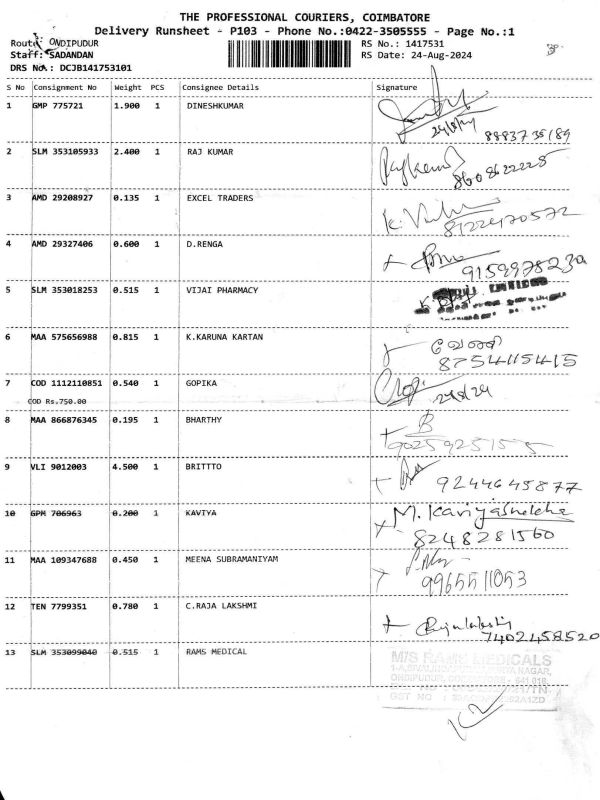 THE PROFESSIONAL COURIERS, COIMBATORE
Delivery Runsheet - P103 - Phone No.:0422-3505555 - Page No.:1
Route: ONDIPUDUR RS No.: 1417531
Staff: SADANDAN RS Date: 24-Aug-2024
DRS No.: DCJB141753101
S No Consignment No Weight PCS Consignee Details Signature
1 GMP 775721 1.900 1 DINESHKUMAR
24/8/24 8883735189
2 SLM 353105933 2.400 1 RAJ KUMAR Rajkumar
8608622225
3 AMD 29208927 0.135 1 EXCEL TRADERS
8122470572
4 AMD 29327406 0.600 1 D.RENGA
9159978230
5 SLM 353018253 0.515 1 VIJAI PHARMACY
6 MAA 575656988 0.815 1 K.KARUNA KARTAN
8754115415
7 COD 1112110851 0.540 1 GOPIKA
COD Rs.750.00
8 MAA 866876345 0.195 1 BHARTHY B
9 VLI 9012003 4.500 1 BRITTTO
9244645877
10 GPM 706963 0.200 1 KAVIYA
8248281560
11 MAA 109347688 0.450 1 MEENA SUBRAMANIYAM
9965511053
12 TEN 7799351 0.780 1 C.RAJA LAKSHMI Rajalakshmi
7402458520
13 SLM 353099040 0.515 1 RAMS MEDICAL M/S RAMS MEDICALS